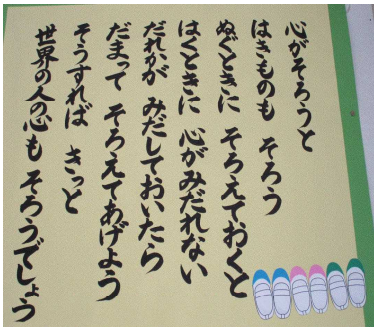 心がそろうと
はきものも そろう
ぬぐときに そろえておくと
はくときに 心がみだれない
だれかが みだしておいたら
だまって そろえてあげよう
そうすれば きっと
世界の人の心も そろうでしょう